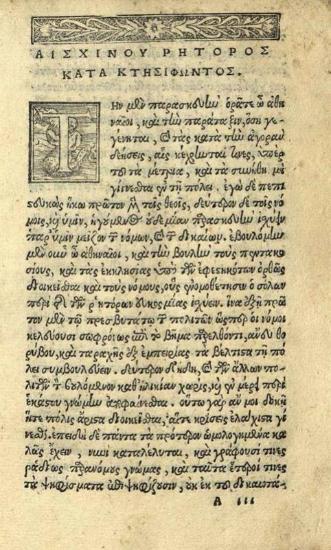 ΑΙΣΧΙΝΟΥ ΡΗΤΟΡΟΣ
ΚΑΤΑ ΚΤΗΣΙΦΩΝΤΟΣ.
Τὴν μὲν παρασκευὴν ὁρᾶτε ὦ ἀθη
ναῖοι, καὶ τὴν παράταξιν, ὅση γε
γένηται, καὶ τὰς κατὰ τὴν ἀγορὰν
δεήσεις, αἷς κέχρηνταί τινες, ὑπὲρ
τοῦ τὰ μέτρια, καὶ τὰ συνήθη μὴ
γίνεσθαι ἐν τῇ πόλει. ἐγὼ δὲ πεπι
στευκὼς ἥκω πρῶτον μὲν τοῖς θεοῖς, δεύτερον δὲ τοῖς νό
μοις, καὶ ὑμῖν, ἡγούμενος οὐδεμίαν παρασκευὴν ἰσχύειν
παρ' ὑμῖν μεῖζον τῶν νόμων, καὶ τῶν δικαίων. ἐβουλόμην
μὲν οὖν ὦ ἀθηναῖοι, καὶ τὴν βουλὴν τοὺς πεντακο
σίους, καὶ τὰς ἐκκλησίας ὑπὸ τῶν ἐφεστηκότων ὀρθῶς
διοικεῖσθαι καὶ τοὺς νόμους, οὓς ἐνομοθέτησεν ὁ σόλων
περὶ τῆς τῶν ῥητόρων εὐκοσμίας ἰσχύειν. ἵνα ἐξῇ πρῶ
τον μὲν τῷ πρεσβυτάτῳ τῶν πολιτῶν ὥσπερ οἱ νόμοι
κελεύουσι σωφρόνως ἐπὶ τὸ βῆμα παρελθόντι, ἄνευ θο
ρύβου, καὶ ταραχῆς ἐξ ἐμπειρίας τὰ βέλτιστα τῇ πό
λει συμβουλεύειν. δεύτερον δ' ἤδη, καὶ τῶν ἄλλων πο
λιτῶν τὸν βουλόμενον καθ' ἡλικίαν χωρὶς, καὶ ἐν μέρει περὶ
ἑκάστου γνώμην ἀποφαίνεσθαι. οὕτω γὰρ ἄν μοι δοκῇ
ἥτε πόλις ἄριστα διοικεῖσθαι, αἵτε κρίσεις ἐλάχισται γί
νεσθαι. ἐπειδὴ δὲ πάντα τὰ πρότερον ὡμολογημένα κα
λῶς ἔχειν, νυνὶ καταλέλυται, καὶ γράφουσί τινες
ῥᾳδίως παρανόμους γνώμας, καὶ ταῦτα ἕτεροί τινες
τὰ ψηφίσματα ἐπιψηφίζουσιν, οὐκ ἐκ τοῦ δικαιοτά-
A iii